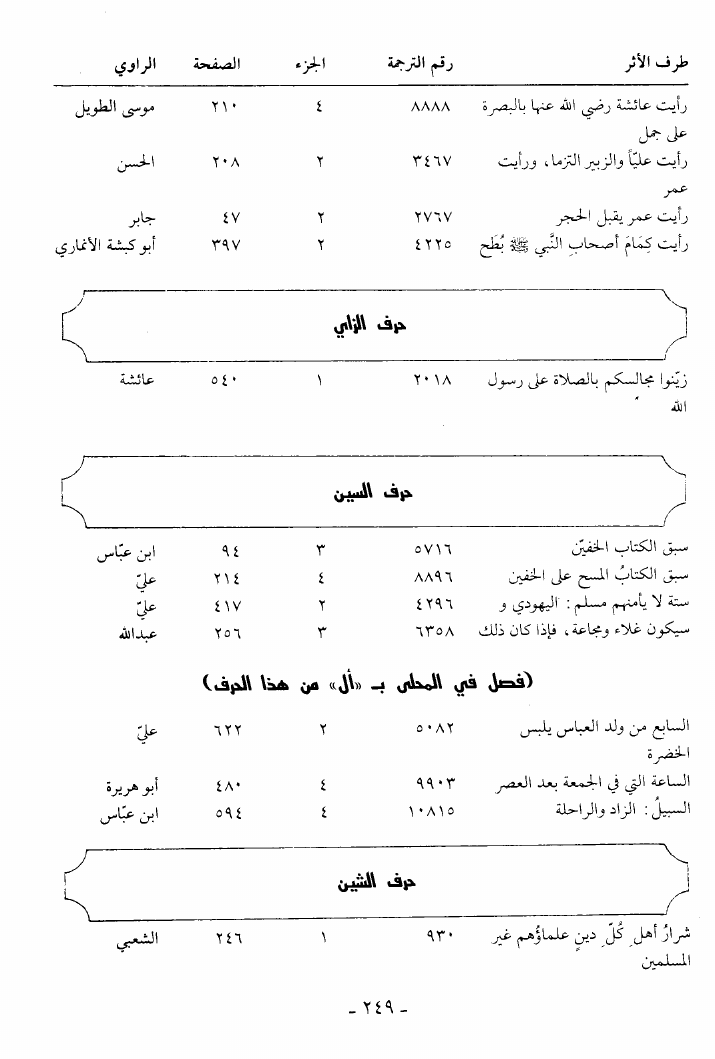 طرف الأثر رقم الترجمة الجزء الصفحة الراوي
رأيت عائشة رضي الله عنها بالبصرة ٨٨٨٨ ٤ ٢١٠ موسى الطويل
على جمل
رأيت عليّاً والزبير التزما، ورأيت ٣٤٦٧ ٢ ٢٠٨ الحسن
عمر
رأيت عمر يقبل الحجر ٢٧٦٧ ٢ ٤٧ جابر
رأيت كِمَامَ أصحابِ النَّبي ﷺ بُطَح ٤٢٢٥ ٢ ٣٩٧ أبو كبشة الأنماري
حرف الزاي
زيّنوا مجالسكم بالصلاة على رسول ٢٠١٨ ١ ٥٤٠ عائشة
الله
حرف السين
سبق الكتاب الخفيّن ٥٧١٦ ٣ ٩٤ ابن عبّاس
سبق الكتابُ المسح على الخفين ٨٨٩٦ ٤ ٢١٤ عليّ
ستة لا يأمنهم مسلم: اليهودي و ٤٢٩٦ ٢ ٤١٧ عليّ
سيكون غلاء ومجاعة، فإذا كان ذلك ٦٣٥٨ ٣ ٢٥٦ عبدالله
(فصل في المحلى بـ «أل» من هذا الحرف)
السابع من ولد العباس يلبس ٥٠٨٢ ٢ ٦٢٢ عليّ
الخضرة
الساعة التي في الجمعة بعد العصر ٩٩٠٣ ٤ ٤٨٠ أبو هريرة
السبيلُ: الزاد والراحلة ١٠٨١٥ ٤ ٥٩٤ ابن عبّاس
حرف الشين
شرارُ أهلِ كُلِّ دينٍ علماؤهم غير ٩٣٠ ١ ٢٤٦ الشعبي
المسلمين
- ٢٤٩ -